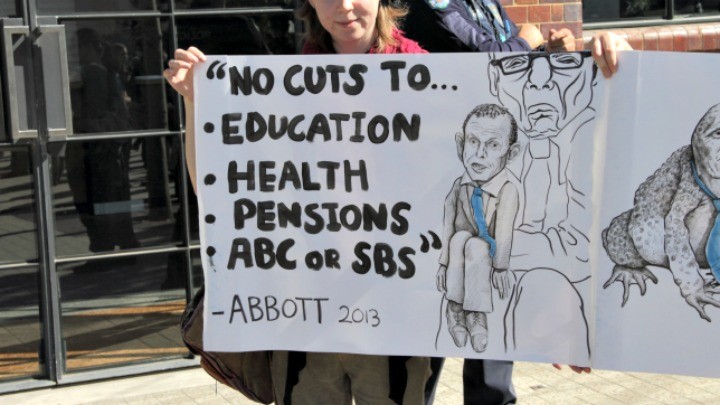 "NO CUTS TO...
• EDUCATION
• HEALTH
• PENSIONS
• ABC OR SBS"
-ABBOTT 2013